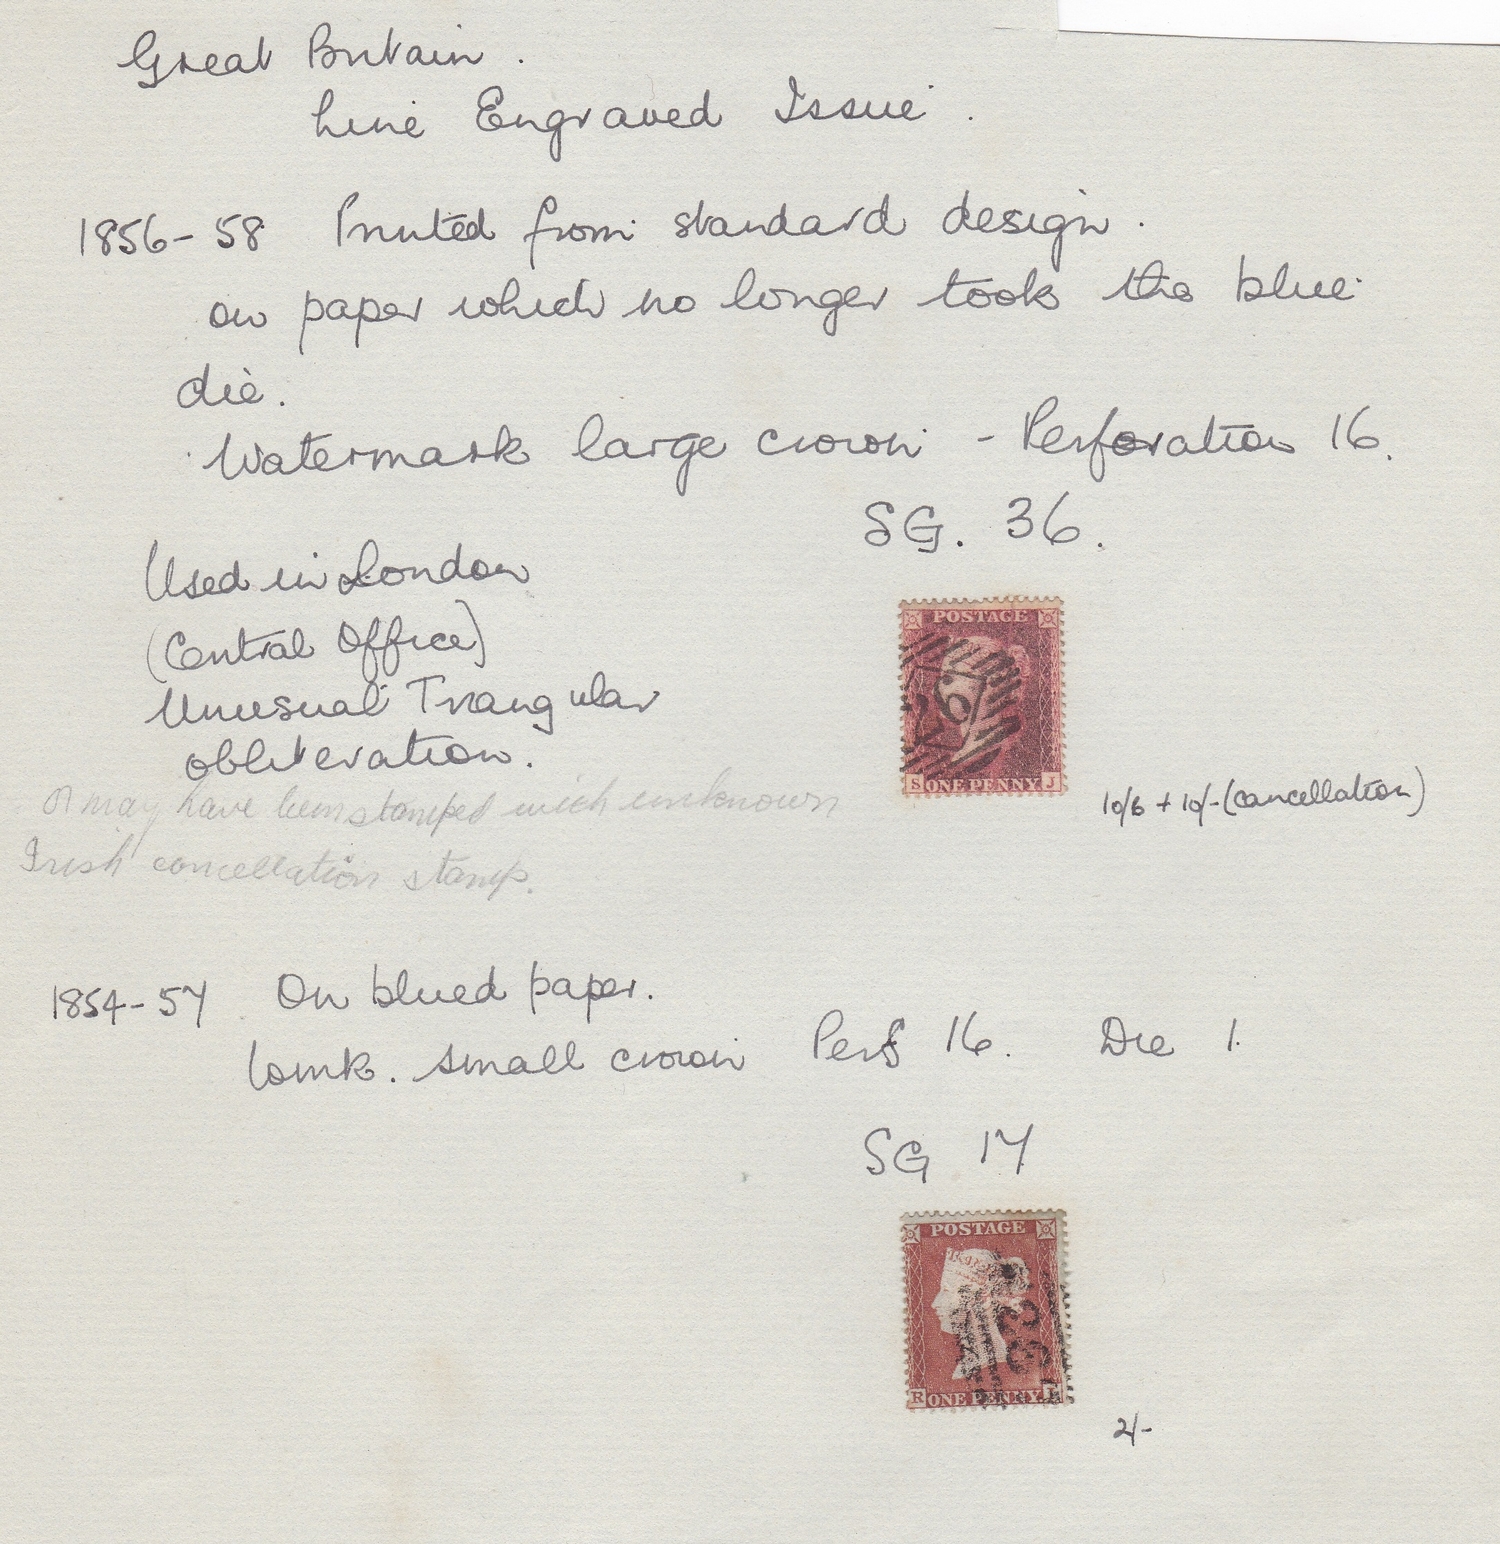 Great Britain.
Line Engraved Issue.
1856-58 Printed from standard design.
on paper which no longer took the blue
die.
Watermark large crown - Perforation 16.
SG. 36.
Used in London
(Central Office)
Unusual Triangular
obliteration.
or may have been stamped with unknown
Irish cancellation stamp.
POSTAGE
26
S ONE PENNY J
10/6 + 10/- (cancellation)
1854-57 On blued paper.
wmk. small crown Perf 16. Die 1.
SG 17
POSTAGE
R ONE PENNY
2/-